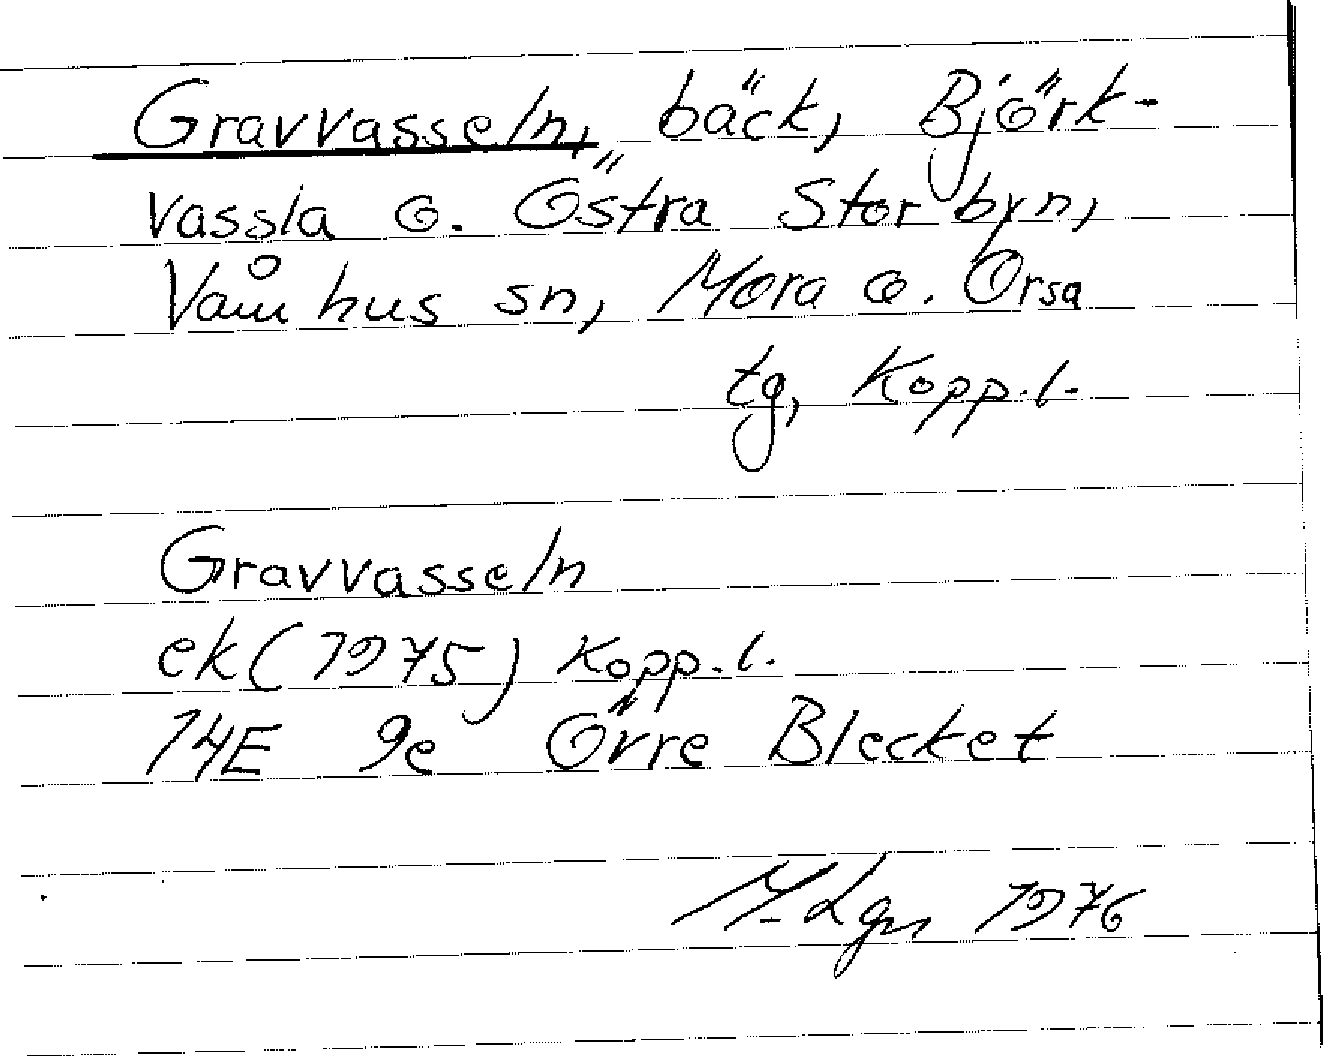 Gravvasseln, bäck, Björk-
vassla o. Östra Storbyn,
Våmhus sn, Mora o. Orsa
tg, Kopp.l.
Gravvasseln
ek (1975) Kopp.l.
14E 9e Övre Blecket
M-Lgn 1976